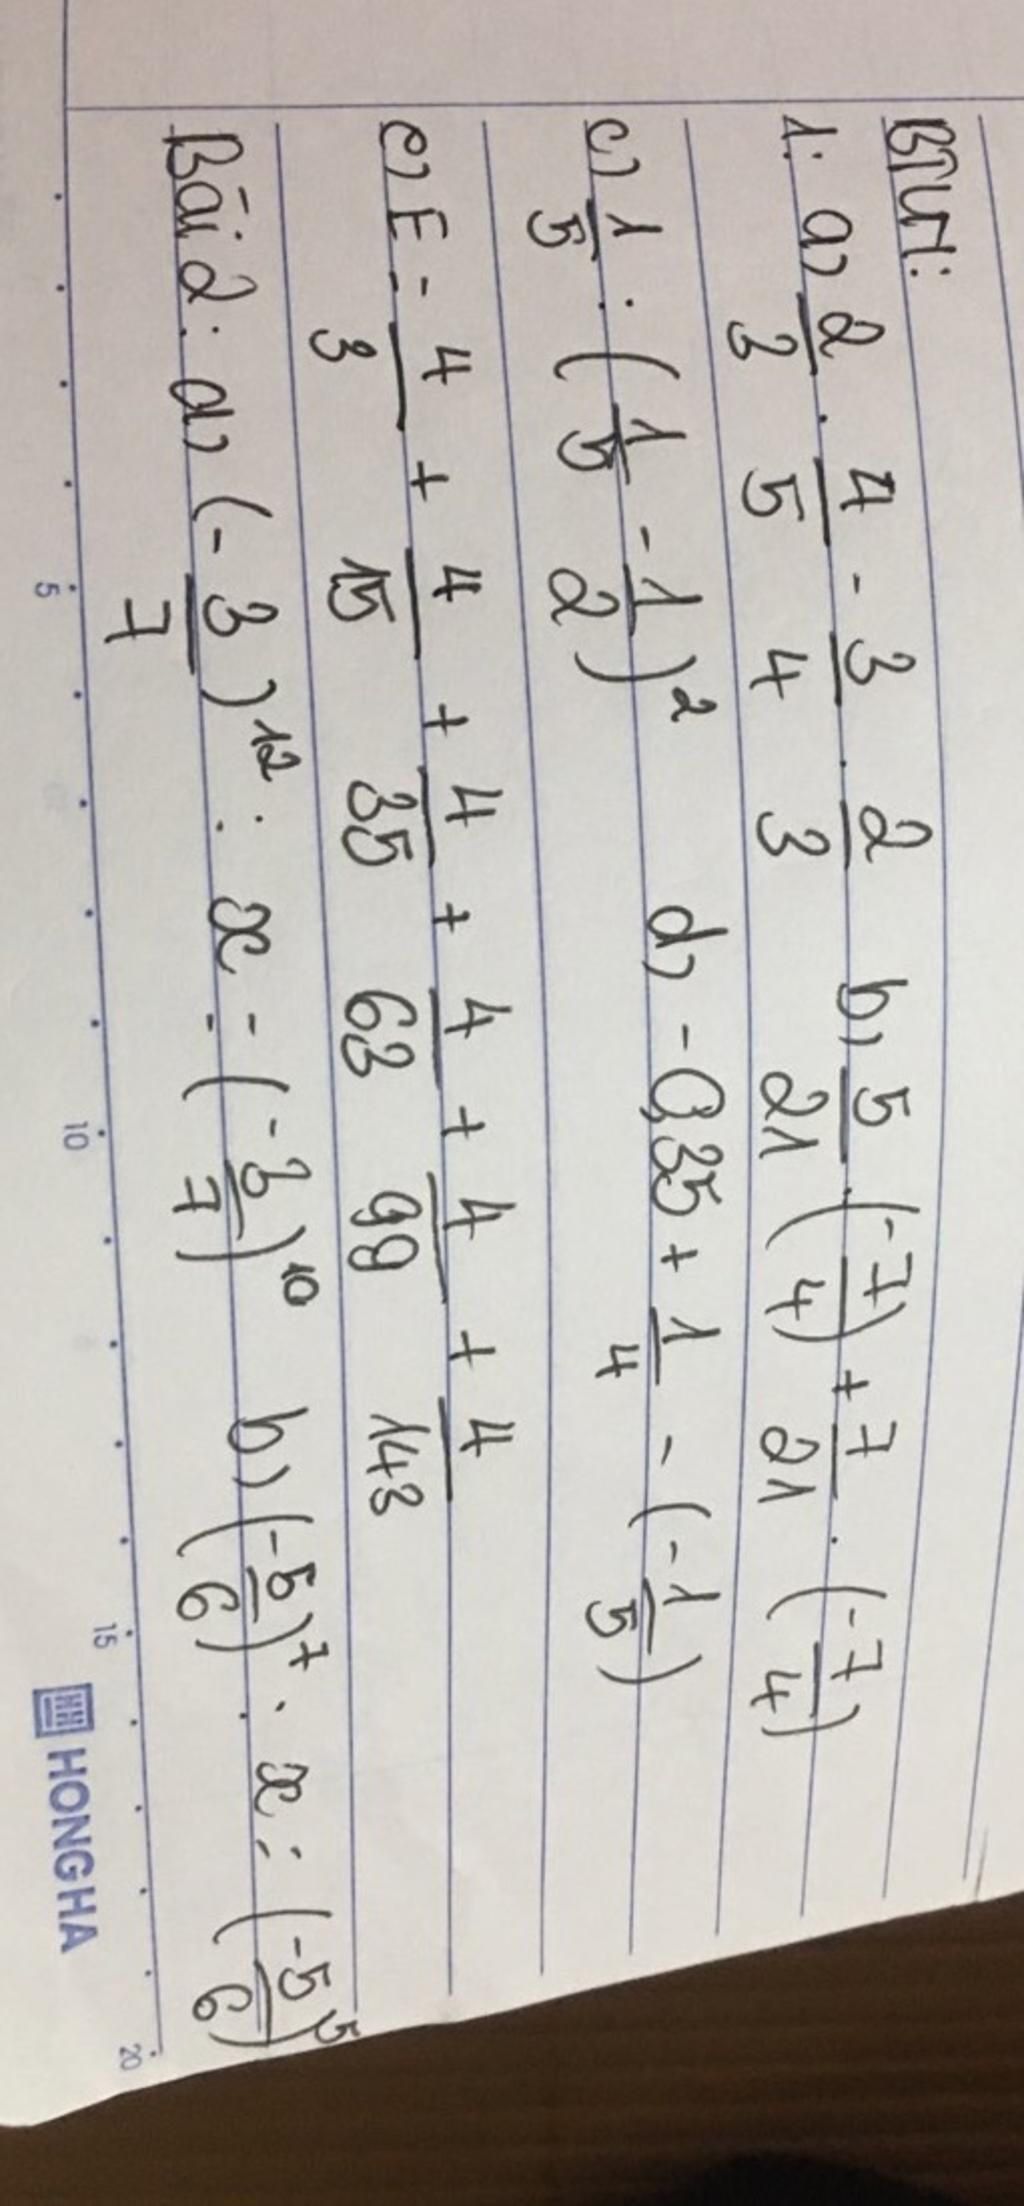 BTVN:
1: a) 2/3 . 4/5 - 3/4 . 2/3 b) 5/21 . (-7/4) + 7/21 . (-7/4)
c) 1/5 : (1/5 - 1/2)² d) -0,35 + 1/4 - (-1/5)
e) E = 4/3 + 4/15 + 4/35 + 4/63 + 4/99 + 4/143
Bài 2: a) (-3/7)¹² : x = (-3/7)¹⁰ b) (-5/6)⁷ . x = (-5/6)⁵
5 10 15 20
HONG HA